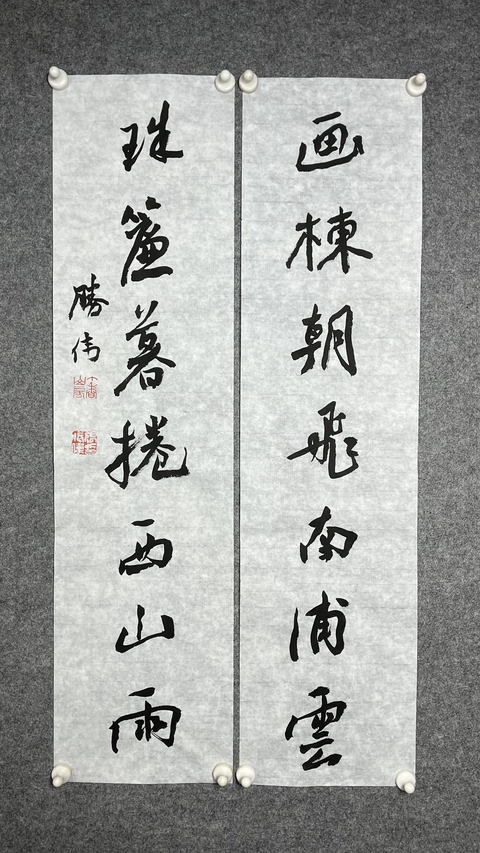 画棟朝飛南浦雲
珠簾暮捲西山雨
勝伟